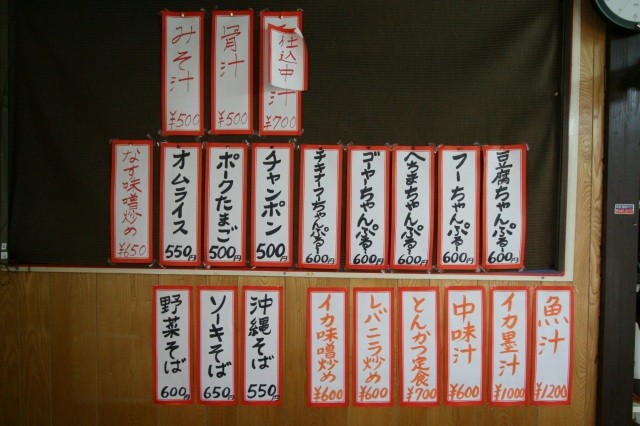 仕込中
汁
¥700
骨汁
¥500
みそ汁
¥500
豆腐ちゃんぷるー
600円
フーちゃんぷるー
600円
へちまちゃんぷるー
600円
ゴーヤちゃんぷるー
600円
ちゃんぷるー
600円
チャンポン
500円
ポークたまご
500円
オムライス
550円
なす味噌炒め
¥650
魚汁
¥1200
イカ墨汁
¥1000
中味汁
¥600
とんかつ定食
¥700
レバニラ炒め
¥600
イカ味噌炒め
¥600
沖縄そば
550円
ソーキそば
650円
野菜そば
600円